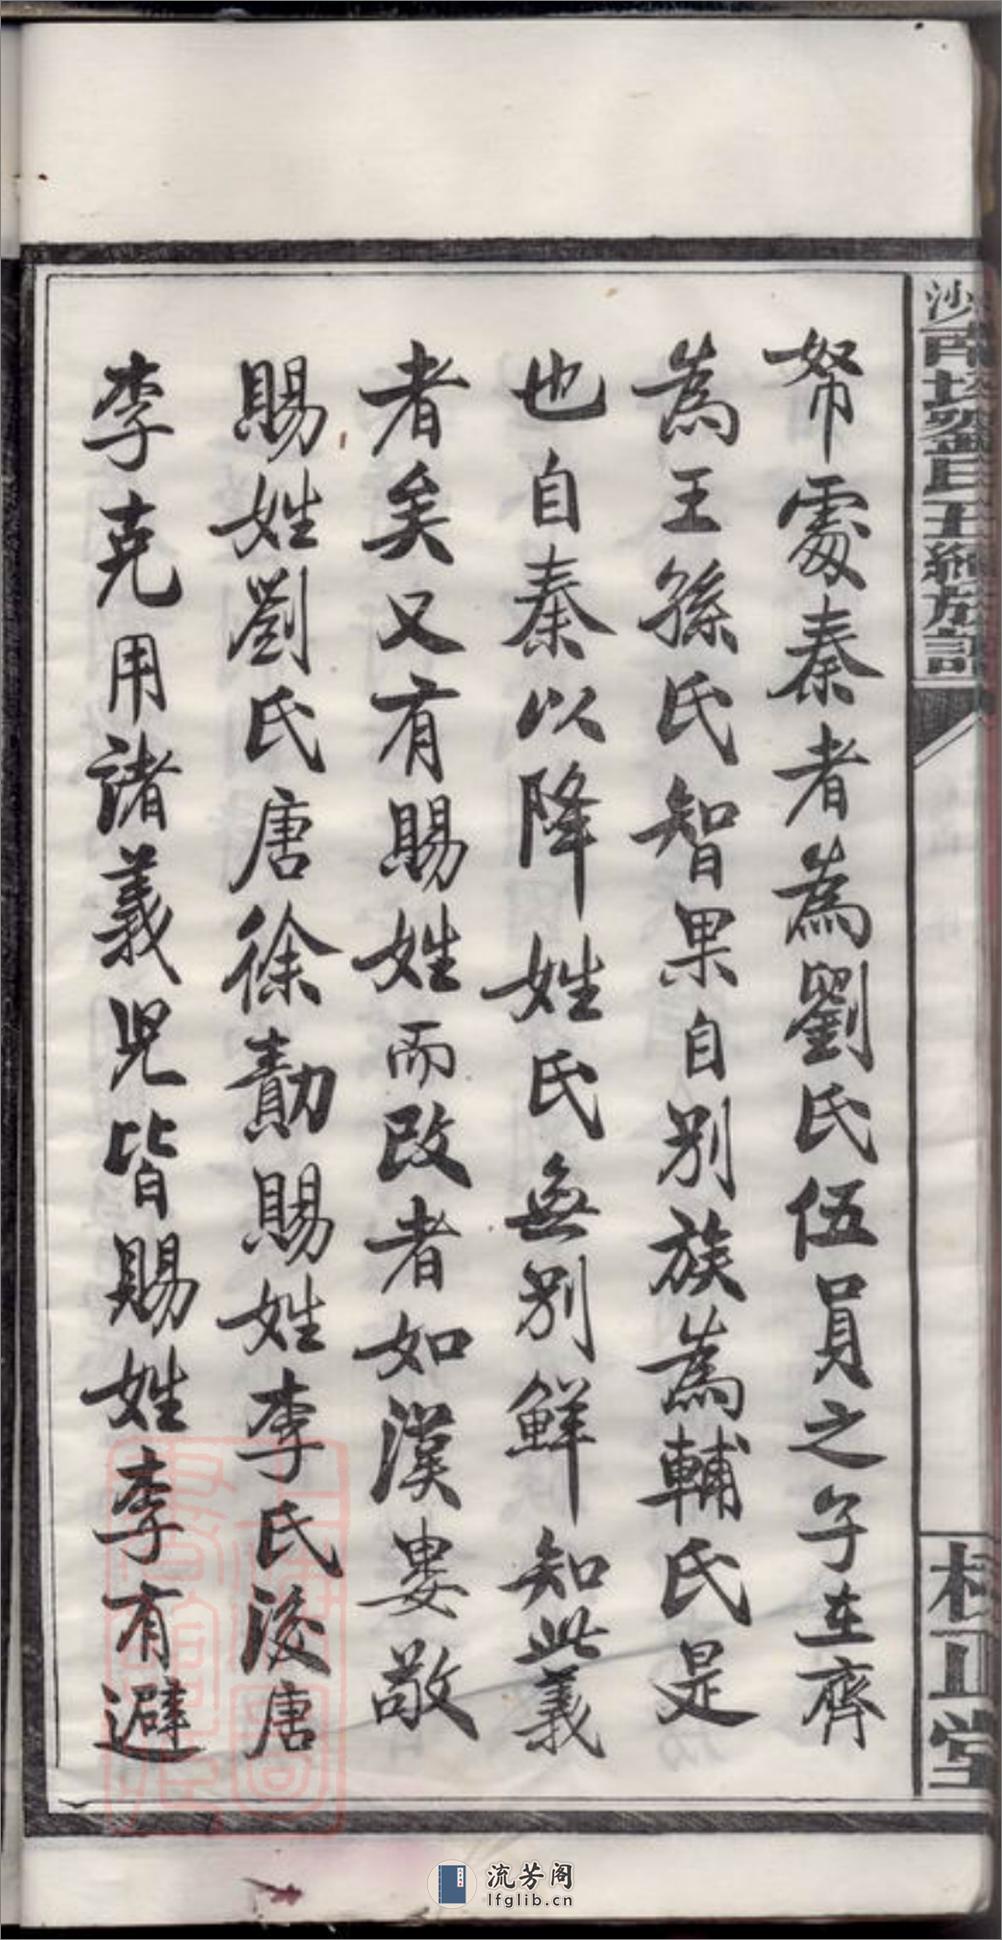 帑處秦者為劉氏伍員之子在齊
為王孫氏智果自别族為輔氏是
也自秦以降姓氏無别鮮知此義
者矣又有賜姓而改者如漢婁敬
賜姓劉氏唐徐勣賜姓李氏後唐
李克用諸義児皆賜姓李有避
流芳阁
lfglib.cn